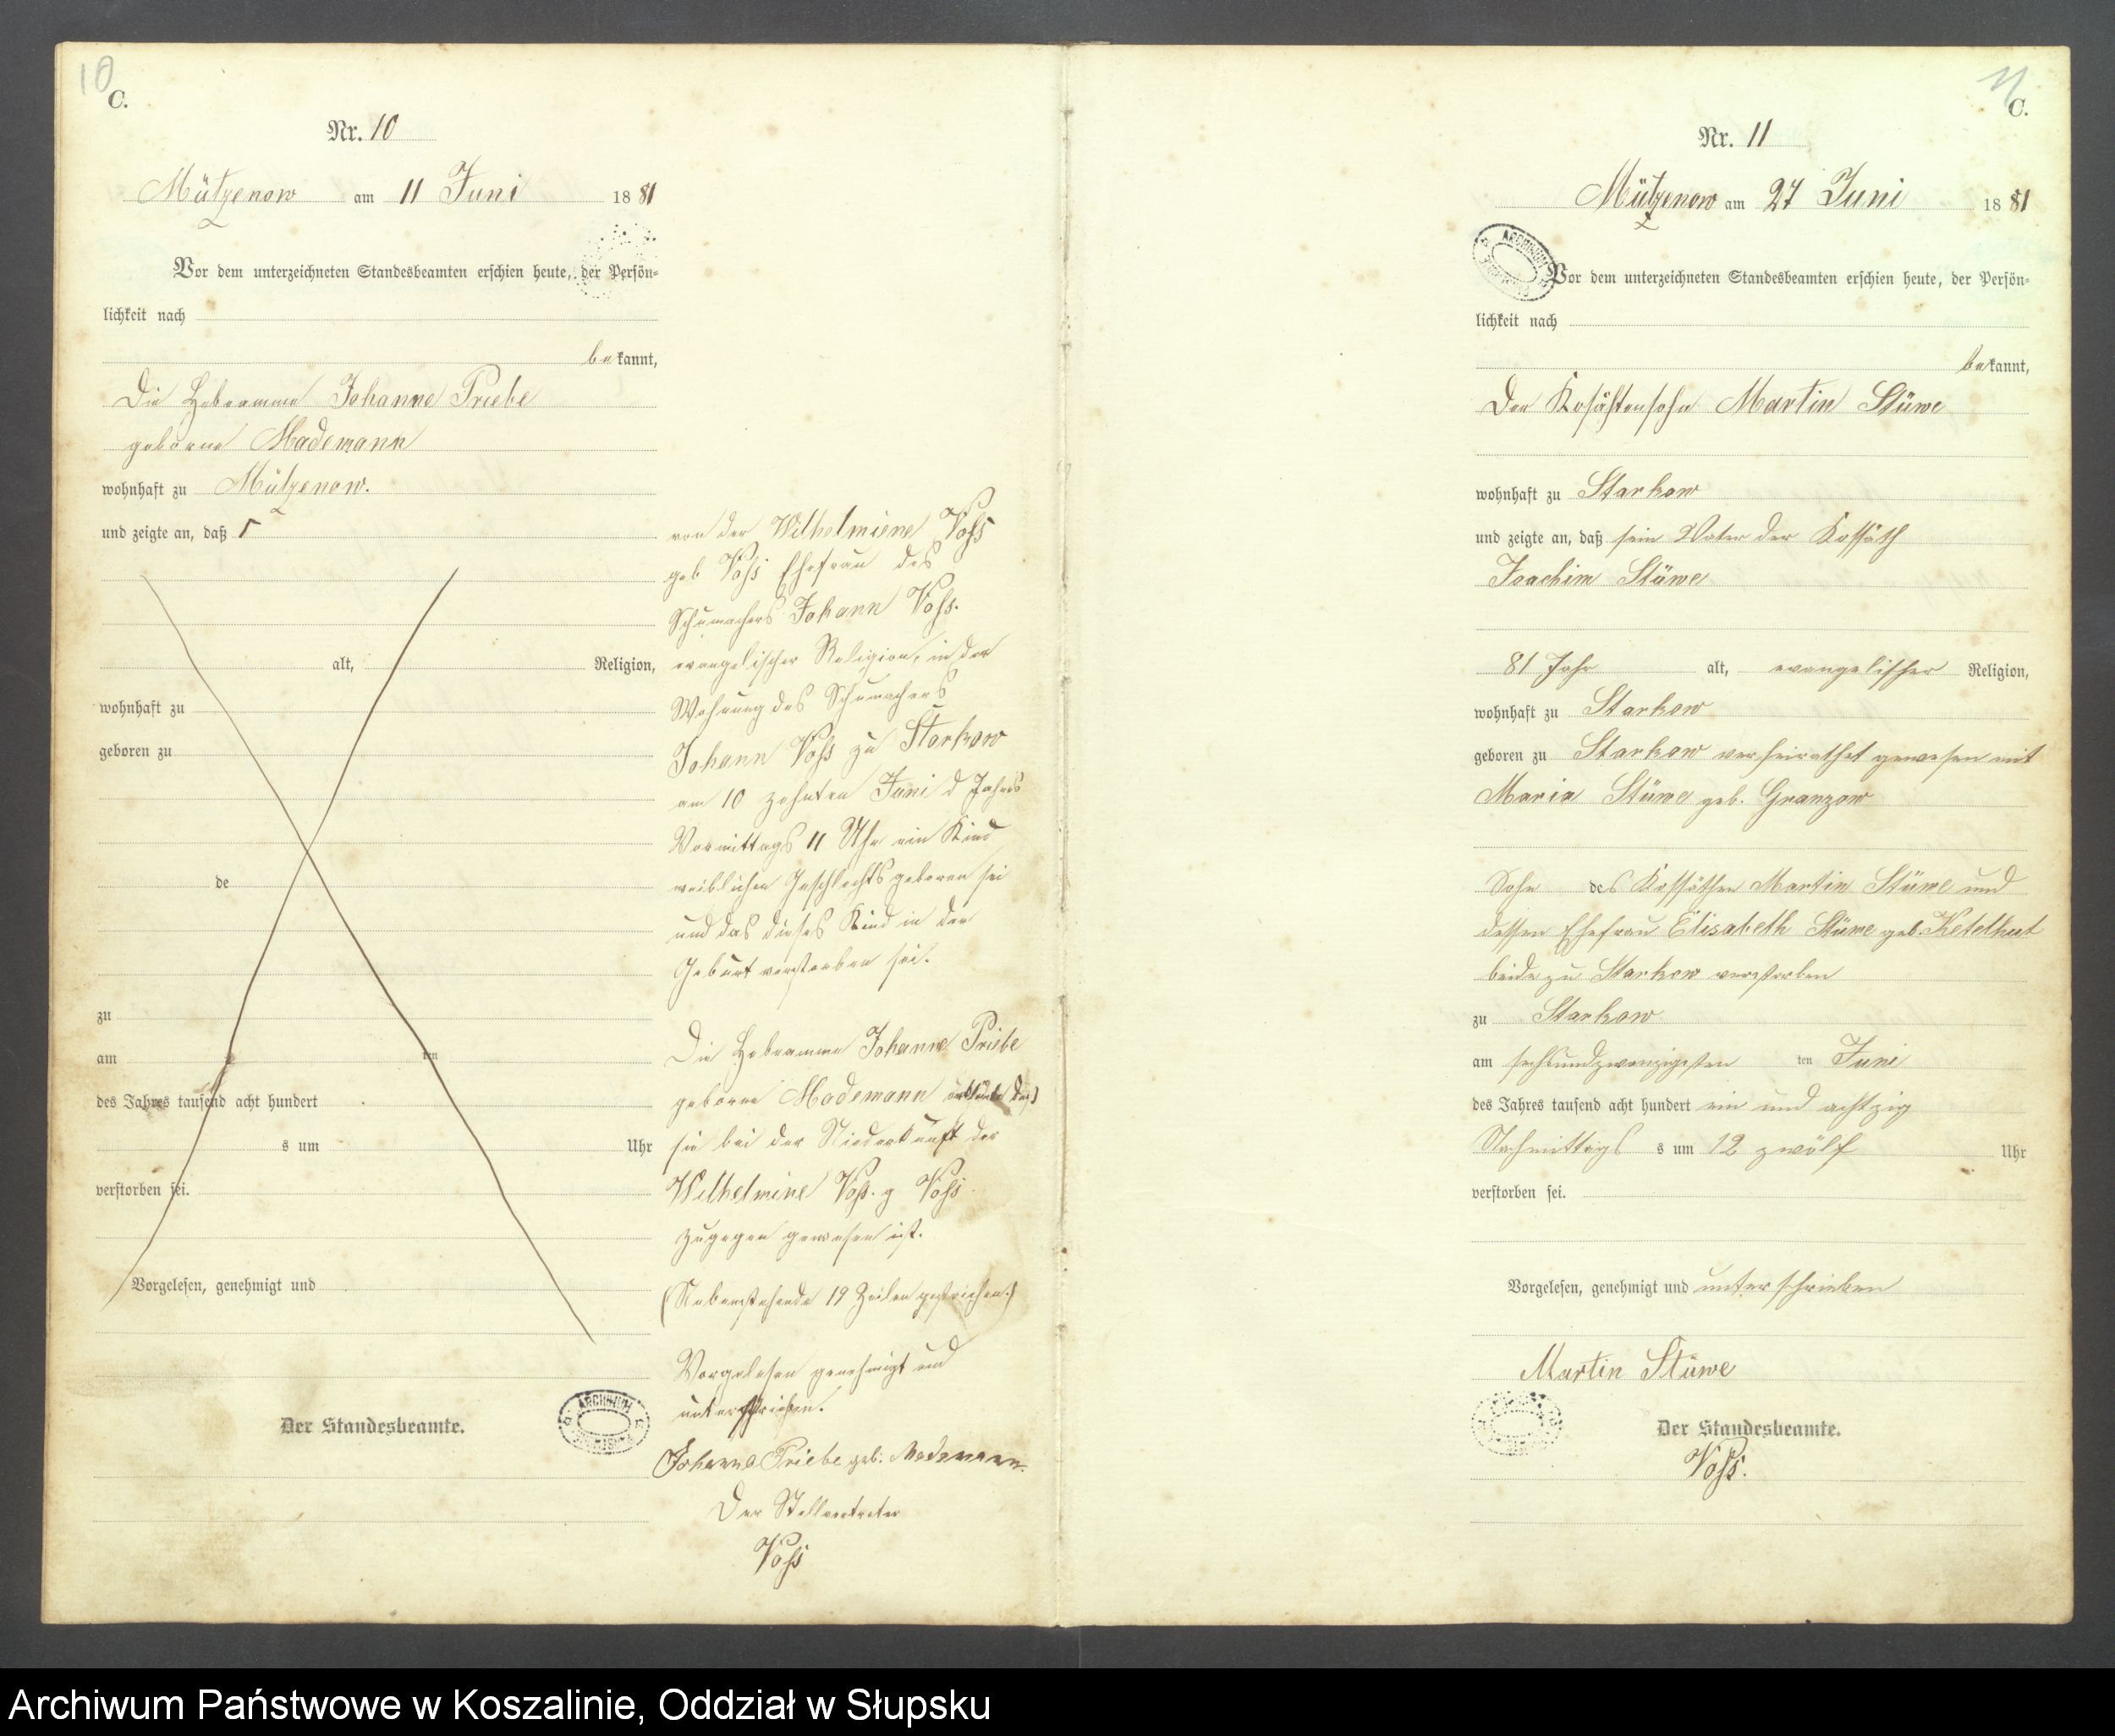 10
C.
Nr. 10
Mützenow am 11 Juni 1881
Vor dem unterzeichneten Standesbeamten erschien heute, der Persön-
lichkeit nach
bekannt,
Die Hebeamme Johanne Priebe
geborne Mademann
wohnhaft zu Mützenow.
und zeigte an, daß
alt, Religion,
wohnhaft zu
geboren zu
de
zu
am ten
des Jahres tausend acht hundert
s um Uhr
verstorben sei.
Vorgelesen, genehmigt und
Der Standesbeamte.
ARCHIWUM
von der Wilhelmiene Voß
geb Voß Ehefrau des
Schumachers Johann Voß.
evangelischer Religion, in der
Wohnung des Schumachers
Johann Voß zu Starkow
am 10 zehnten Juni d Jahres
Vormittags 11 Uhr ein Kind
weiblichen Geschlechts geboren sei
und das dieses Kind in der
Geburt verstorben sei.
Die Hebeamme Johanne Priebe
geborne Mademann
sie bei der Niederkunft der
Wilhelmine Voß. g Voß
zugegen gewesen ist.
(Nebenstehende 19 Zeilen gestrichen.)
Vorgelesen genehmigt und
unterschrieben.
Johanna Priebe geb: Mademann.
Der Stellvertreter
Voß
11
C.
Nr. 11
Mützenow am 27 Juni 1881
ARCHIWUM
Vor dem unterzeichneten Standesbeamten erschien heute, der Persön-
lichkeit nach
bekannt,
Der Kosäthensohn Martin Stüwe
wohnhaft zu Starkow
und zeigte an, daß sein Vater der Kossäth
Joachim Stüwe
81 Jahr alt, evangelischer Religion,
wohnhaft zu Starkow
geboren zu Starkow verheirathet gewesen mit
Maria Stüwe geb. Granzow
Sohn des Kossäthen Martin Stüwe und
dessen Ehefrau Elisabeth Stüwe geb. Ketelhut
beide zu Starkow verstorben
zu Starkow
am sechsundzwanzigsten ten Juni
des Jahres tausend acht hundert ein und achtzig
Nachmittags s um 12 zwölf Uhr
verstorben sei.
Vorgelesen, genehmigt und unterschrieben
Martin Stüwe
Der Standesbeamte.
Voß.
Archiwum Państwowe w Koszalinie, Oddział w Słupsku